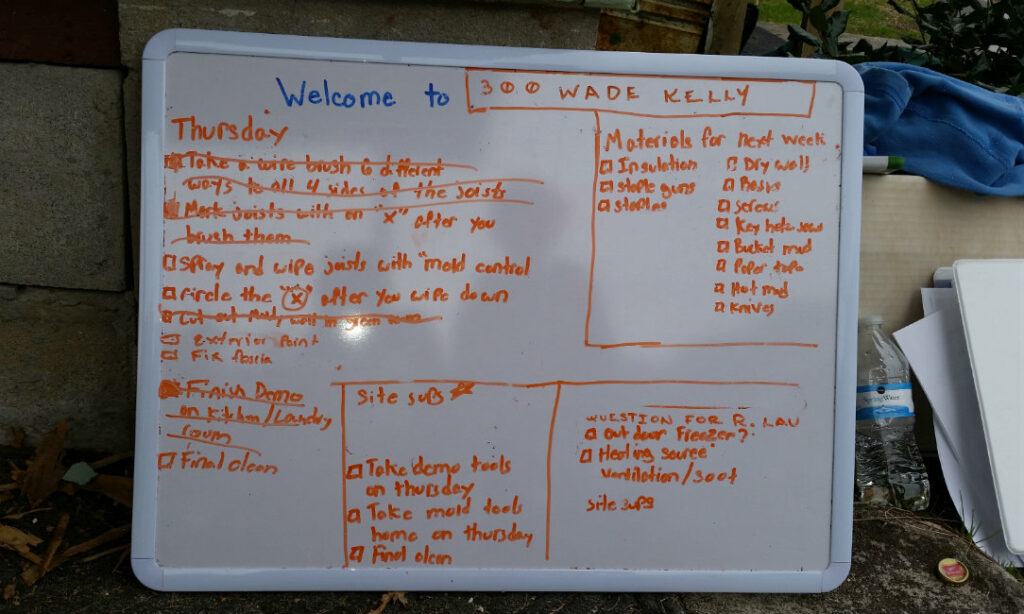 Welcome to 300 WADE KELLY
Thursday
Take a wire brush 6 different
ways to all 4 sides of the joists
Mark joists with an "X" after you
brush them
Spray and wipe joists with "mold control
Circle the X after you wipe down
Cut out moldy wall in green room
Exterior Paint
Fix fascia
Finish Demo
on Kitchen/Laundry
room
Final clean
Materials for next week
Insulation
staple guns
staples
Dry wall
screws
Key hole saws
Bucket mud
Paper tape
Hot mud
Knives
Site sups
Take demo tools
on thursday
Take mold tools
home on thursday
Final clean
QUESTION FOR R. LAU
Out door Freezer?
Heating source
Ventilation/soot
Site sups
Spring Water